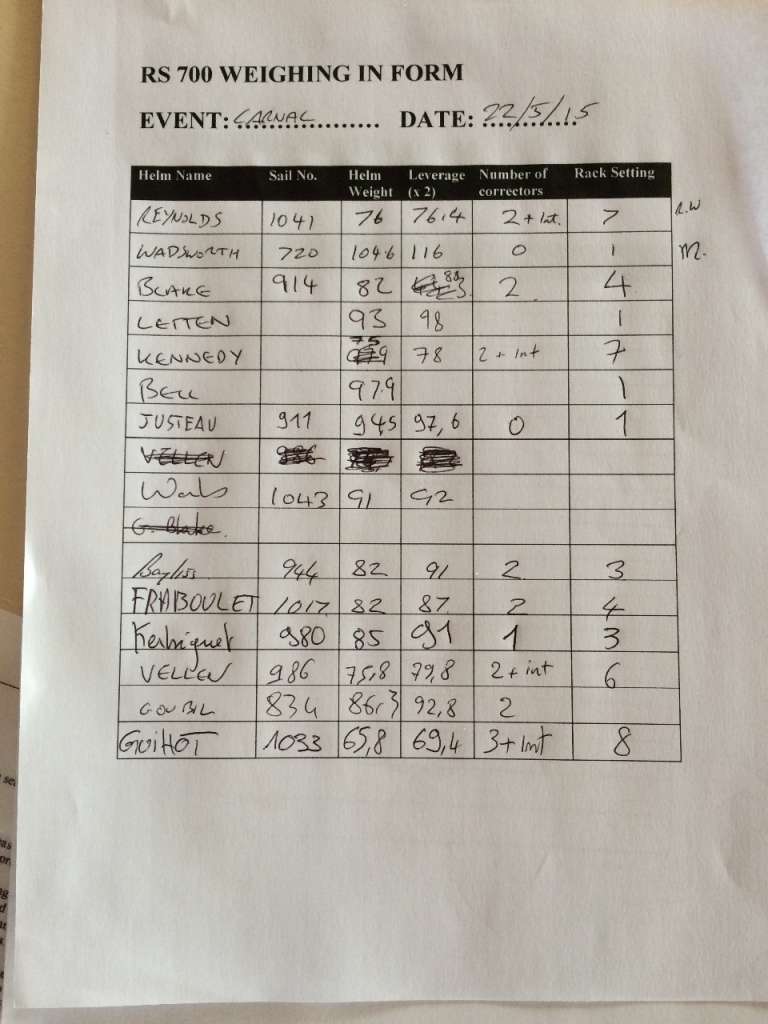 RS 700 WEIGHING IN FORM
EVENT: CARNAC DATE: 22/5/15
Helm Name Sail No. Helm Weight Leverage (x 2) Number of correctors Rack Setting
REYNOLDS 1041 76 76.4 2 + Int. 7 R.W
WADSWORTH 720 104.6 116 0 1 M.
BLAKE 914 82 88 2 4
LETTEN 93 98 1
KENNEDY 75 78 2 + Int 7
BELL 97.9 1
JUSTEAU 911 945 97,6 0 1
VELLEN 986
1043 91 92
G. Blake.
Bayliss 944 82 91 2 3
FRABOULET 1017 82 87 2 4
980 85 91 1 3
VELLEN 986 75,8 79,8 2 + int 6
834 86.3 92,8 2
GUIHOT 1033 65,8 69,4 3 + Int 8